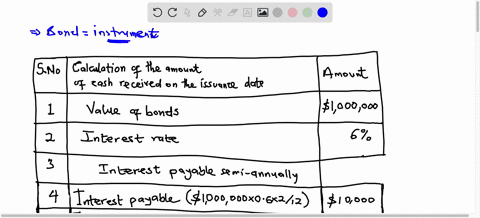 ⇒ Bond = instruments
S.No Calculation of the amount of cash received on the issuance date Amount
1 Value of bonds $1,000,000
2 Interest rate 6%
3 Interest payable semi-annually
4 Interest payable ($1,000,000x0.6x2/12) $10,000